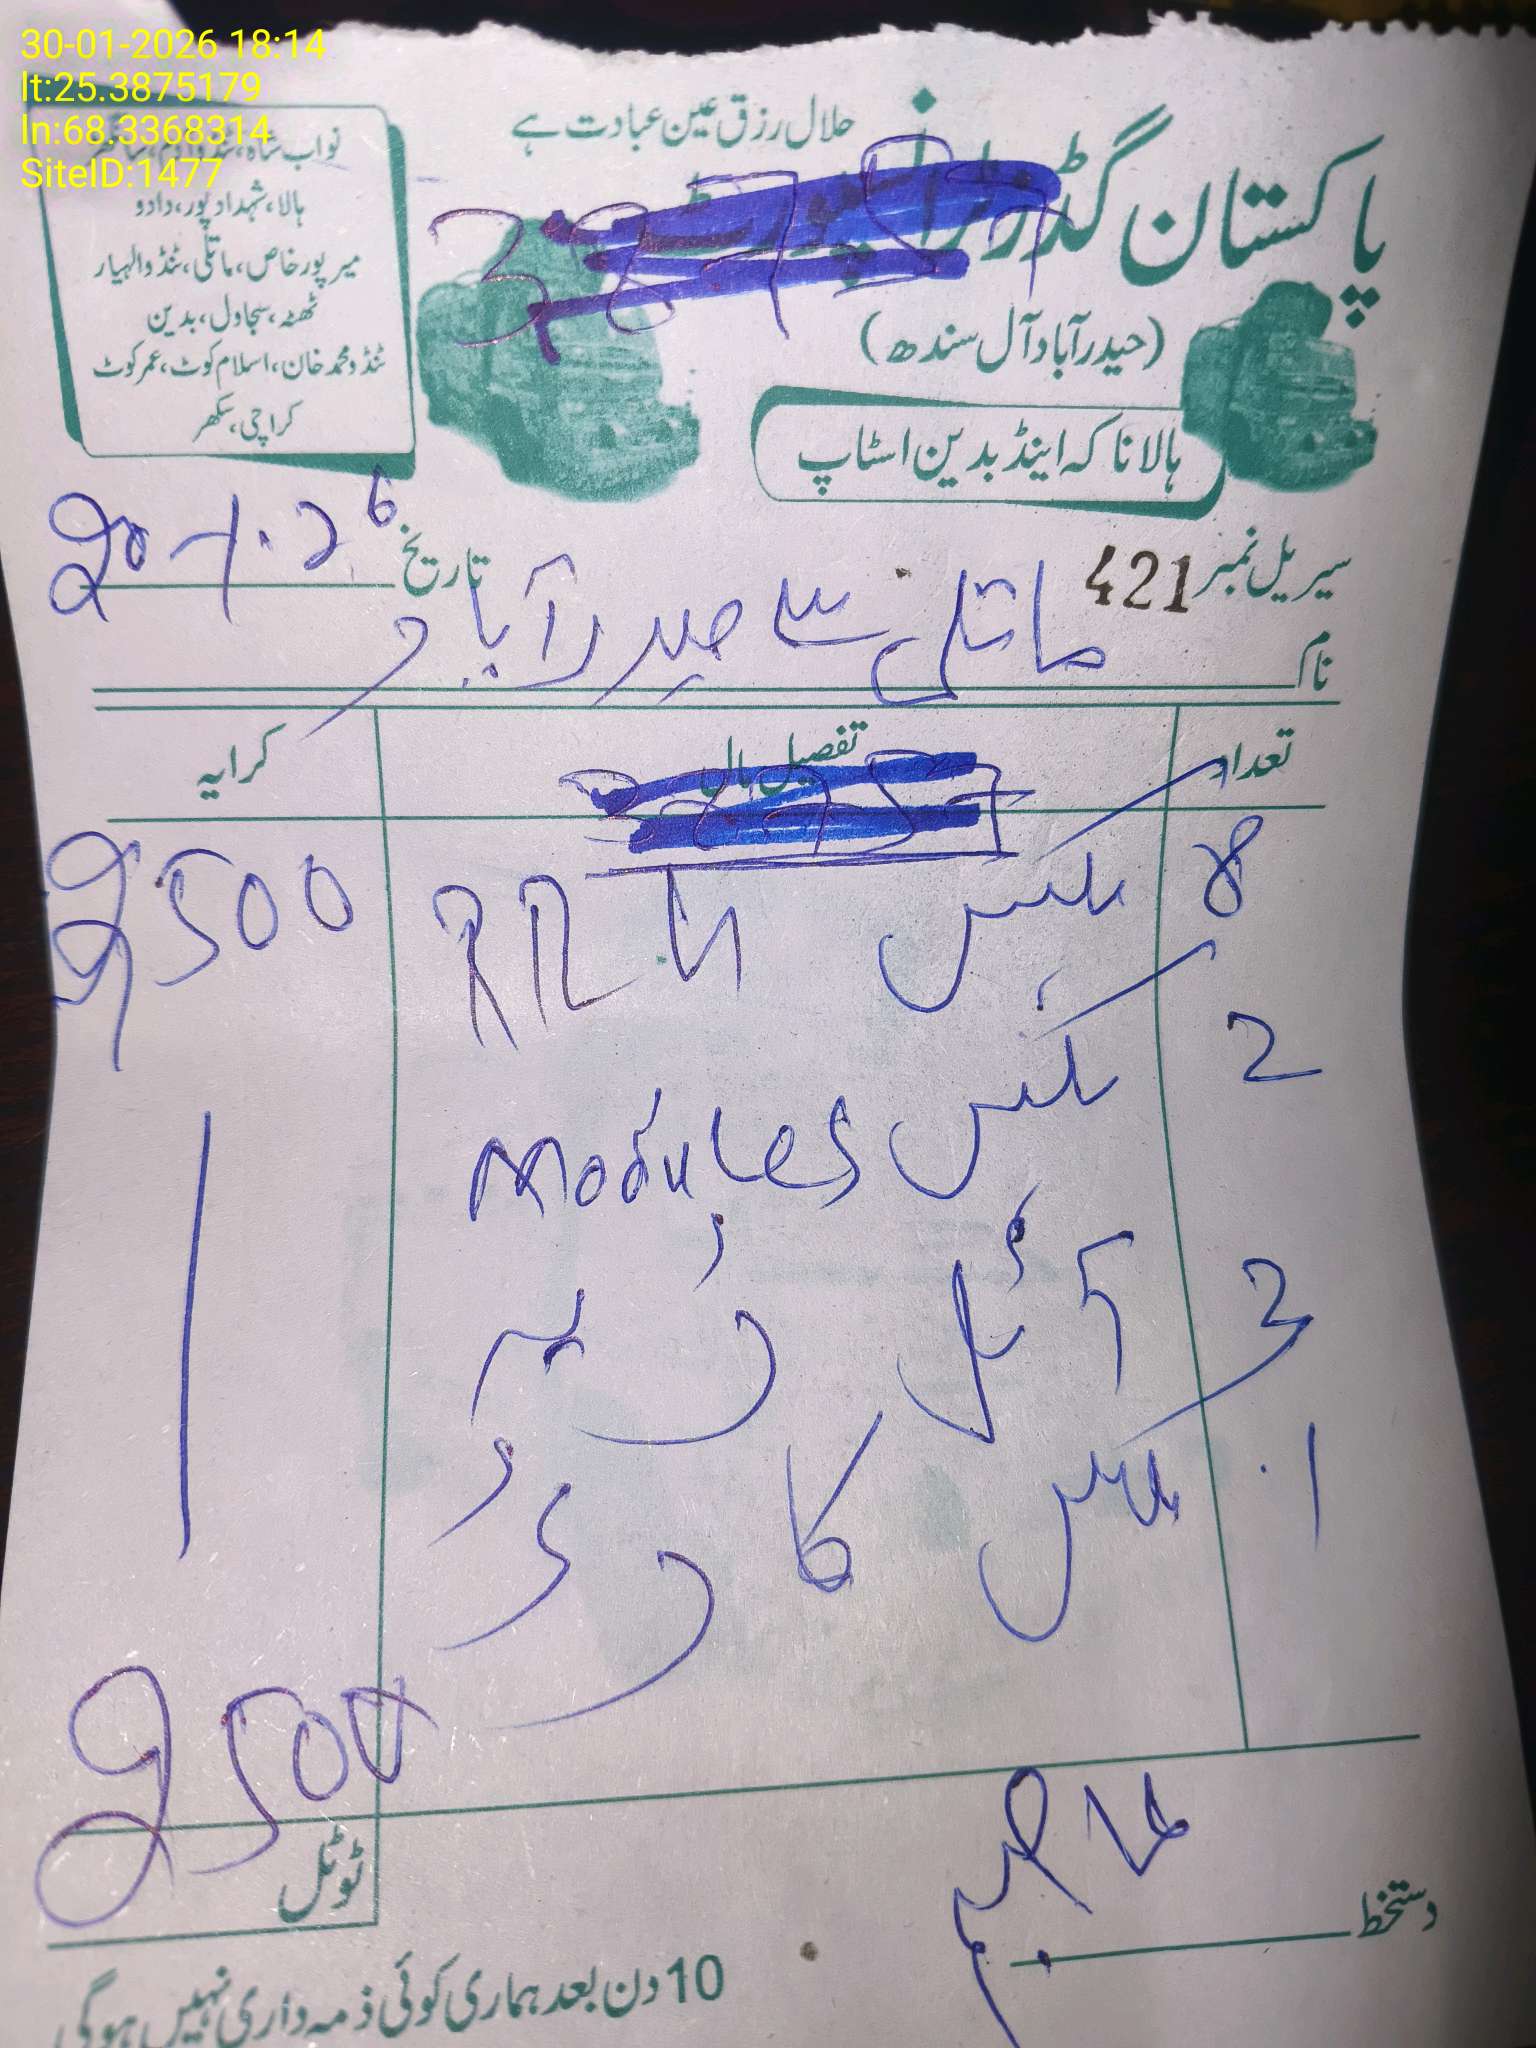 30-01-2026 18:14
lt:25.3875179
ln:68.3368314
SiteID:1477
حلال رزق عین عبادت ہے
پاکستان گڈز ٹرانسپورٹ
(حیدرآباد آل سندھ)
ہالا ناکہ اینڈ بدین اسٹاپ
نواب شاہ، ٹنڈوآدم، سانگھڑ
ہالا، شہدادپور، دادو
میرپورخاص، ماتلی، ٹنڈوالہیار
ٹھٹہ، سجاول، بدین
ٹنڈو محمد خان، اسلام کوٹ، عمرکوٹ
کراچی، سکھر
سیریل نمبر 421 تاریخ 20-1-26
نام ماتلی سے حیدرآباد
تعداد تفصیل مال کرایہ
8 بکس RRU 2500
2 بکس Modules
3 آئل
1 بکس کارڈز
2500
ٹوٹل
دستخط
10 دن بعد ہماری کوئی ذمہ داری نہیں ہوگی